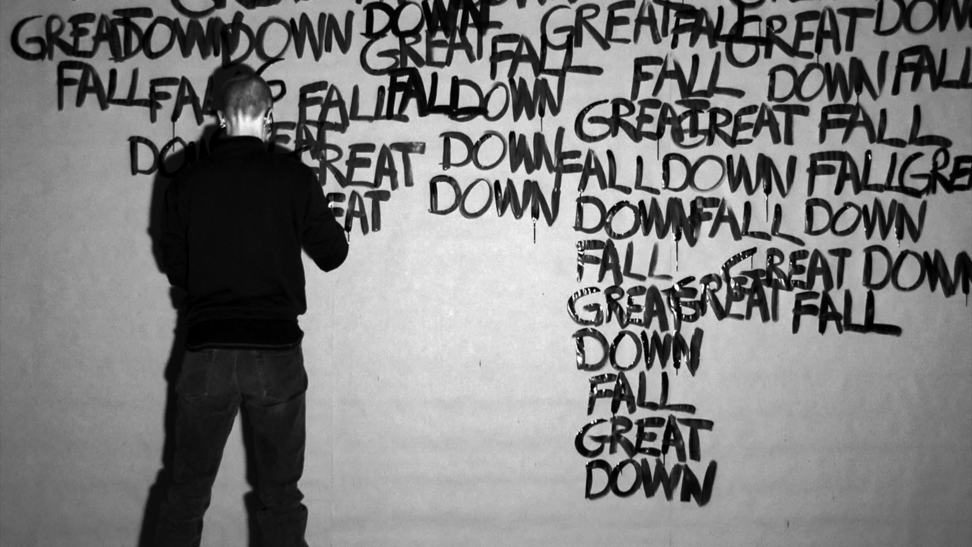 GREAT DOWN DOWN DOWN GREAT FALL GREAT DOWN
GREAT FALL
FALL FALL FALL FALL DOWN FALL DOWN FALL
GREAT GREAT FALL
DOWN GREAT DOWN FALL DOWN FALL GRE
EAT DOWN DOWN FALL DOWN
FALL GREAT DOWN
GREAT GREAT FALL
DOWN
FALL
GREAT
DOWN